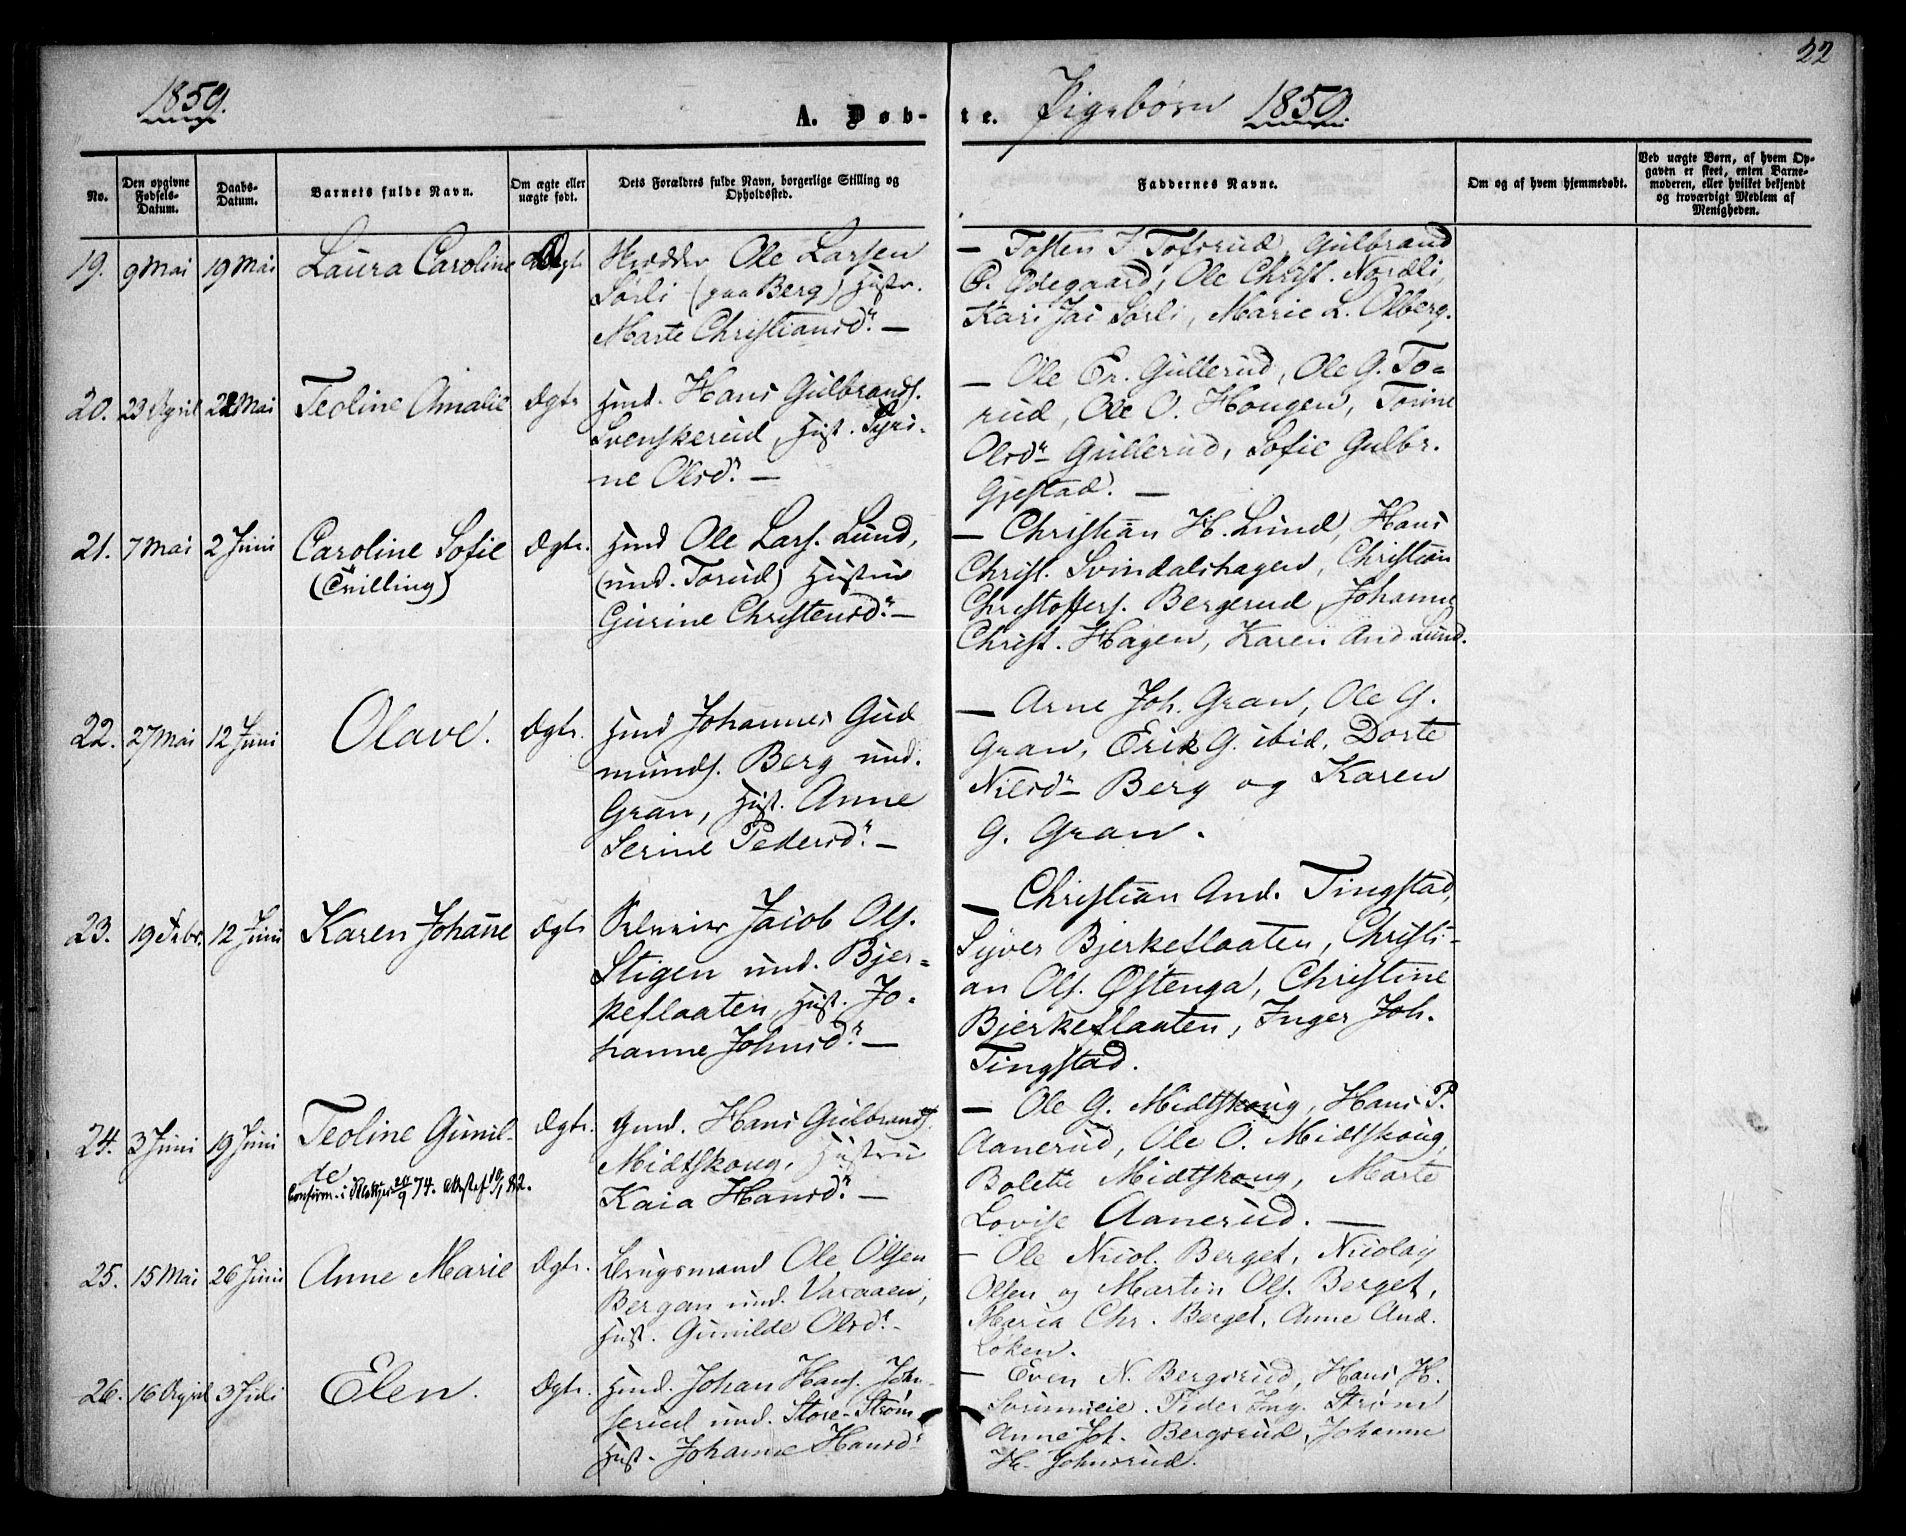 22
1859.
A. Døb-
te.
Pigebørn 1859.
No.
Den opgivne Fødsels-Datum.
Daabs-Datum.
Barnets fulde Navn.
Om ægte eller uægte født.
Dets Forældres fulde Navn, borgerlige Stilling og Opholdssted.
Faddernes Navne.
Om og af hvem hjemmedøbt.
Ved uægte Børn, af hvem Opgaven er skeet, enten Barnemoderen, eller hvilket bekjendt og troværdigt Medlem af Menigheden.
19. 9 Mai 19 Mai Laura Caroline Ægte
Ole Larsen
Sørli (paa Berg) Hustr.
Marte Christiansdr. —
— Tosten T. Tofsrud, Gulbrand
O. Ødegaard, Ole Christ. Nordli,
Kari Jac Sørli, Marie L. Olberg.
20. 29 April 22 Mai Teoline Amalie dgtr
Hmd. Hans Gulbrands.
Svenskerud, Hust. Syri-
ne Olsdr. —
— Ole Er. Gullerud, Ole G. To-
rud, Ole O. Hougen, Torine
Olsdr Gullerud, Sofie Gulbr.
Gjestad. —
21. 7 Mai 2 Juni Caroline Sofie dgtr.
(Tvilling)
Hmd Ole Lars. Lund,
(und. Torud) Hustru
Gurine Christensdr. —
— Christian H. Lund, Hans
Christ. Svindalshagen, Christian
Christoffers. Bergerud, Johanne
Christ. Hagen, Karen And Lund.
22. 27 Mai 12 Juni Olave. dgtr.
Hmd Johannes Gud
munds. Berg und.
Gran, Hust. Anne
Serine Pedersdr. —
— Arne Joh. Gran, Ole G.
Gran, Erik G. ibid, Dorte
Nilsdr Berg og Karen
G. Gran.
23. 19 Febr. 12 Juni Karen Johanne dgtr
Jacob Ols.
Stigen und. Bjer-
keflaaten, Hust. Jo-
hanne Johnsd. —
— Christian And. Tingstad,
Syver Bjerkeflaaten, Christi-
an Ols. Østenga, Christine
Bjerkeflaaten, Inger Joh.
Tingstad.
24. 3 Juni 19 Juni Teoline Gunil- dgtr.
de
Gmd. Hans Gulbrands.
Midtskoug, Hustru
Kaia Hansdr. —
— Ole G. Midtskoug, Hans P.
Aanerud, Ole O. Midtskoug,
Bolette Midtskoug, Marte
Lovise Aanerud. —
25. 15 Mai 26 Juni Anne Marie dgtr.
Brugsmand Ole Olsen
Bergan und.
Hust. Gunilde Olsdr. —
— Ole Nicol. Berget, Nicolay
Olsen og Martin Ols. Berget,
Maria Chr. Berget, Anne And.
Løken.
26. 16 April 3 Juli Elen. dgtr.
Hmd. Johan Hans. John-
serud und. Store-Strøm
Hust. Johanne Hansdr
— Even N. Bergsrud, Hans H.
Peder Ing. Strøm
Anne Joh. Bergsrud, Johanne
H. Johnsrud.